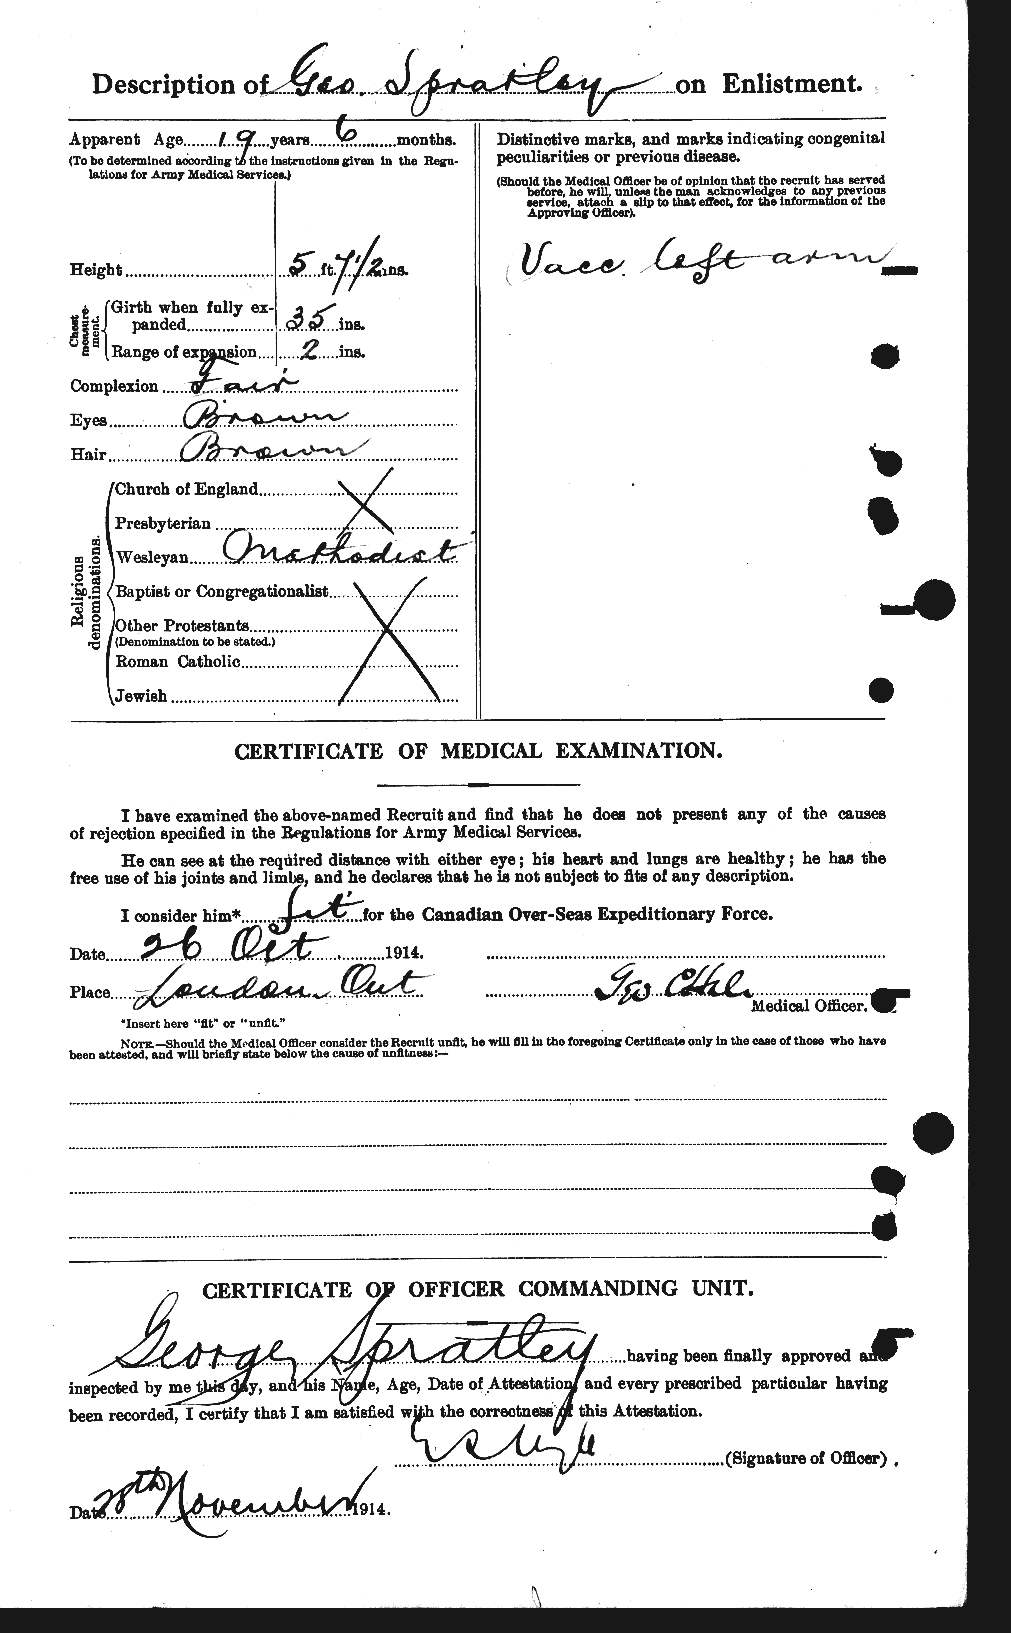 Description of Geo. Spratley on Enlistment.
Apparent Age 19 years 6 months.
(To be determined according to the instructions given in the Regu-
lations for Army Medical Services.)
Height 5 ft. 7 1/2 ins.
Chest measure-ment.
Girth when fully ex-
panded 35 ins.
Range of expansion 2 ins.
Complexion Fair
Eyes Brown
Hair Brown
Religious denominations.
Church of England
Presbyterian
Wesleyan Methodist
Baptist or Congregationalist
Other Protestants
(Denomination to be stated.)
Roman Catholic
Jewish
Distinctive marks, and marks indicating congenital
peculiarities or previous disease.
(Should the Medical Officer be of opinion that the recruit has served
before, he will, unless the man acknowledges to any previous
service, attach a slip to that effect, for the information of the
Approving Officer).
Vacc. left arm
CERTIFICATE OF MEDICAL EXAMINATION.
I have examined the above-named Recruit and find that he does not present any of the causes
of rejection specified in the Regulations for Army Medical Services.
He can see at the required distance with either eye; his heart and lungs are healthy; he has the
free use of his joints and limbs, and he declares that he is not subject to fits of any description.
I consider him* fit for the Canadian Over-Seas Expeditionary Force.
Date 26 Oct 1914.
Place London Ont
Geo
Medical Officer.
*Insert here "fit" or "unfit."
NOTE.—Should the Medical Officer consider the Recruit unfit, he will fill in the foregoing Certificate only in the case of those who have
been attested, and will briefly state below the cause of unfitness:—
CERTIFICATE OF OFFICER COMMANDING UNIT.
George Spratley having been finally approved and
inspected by me this day, and his Name, Age, Date of Attestation, and every prescribed particular having
been recorded, I certify that I am satisfied with the correctness of this Attestation.
(Signature of Officer)
Date 28th November 1914.